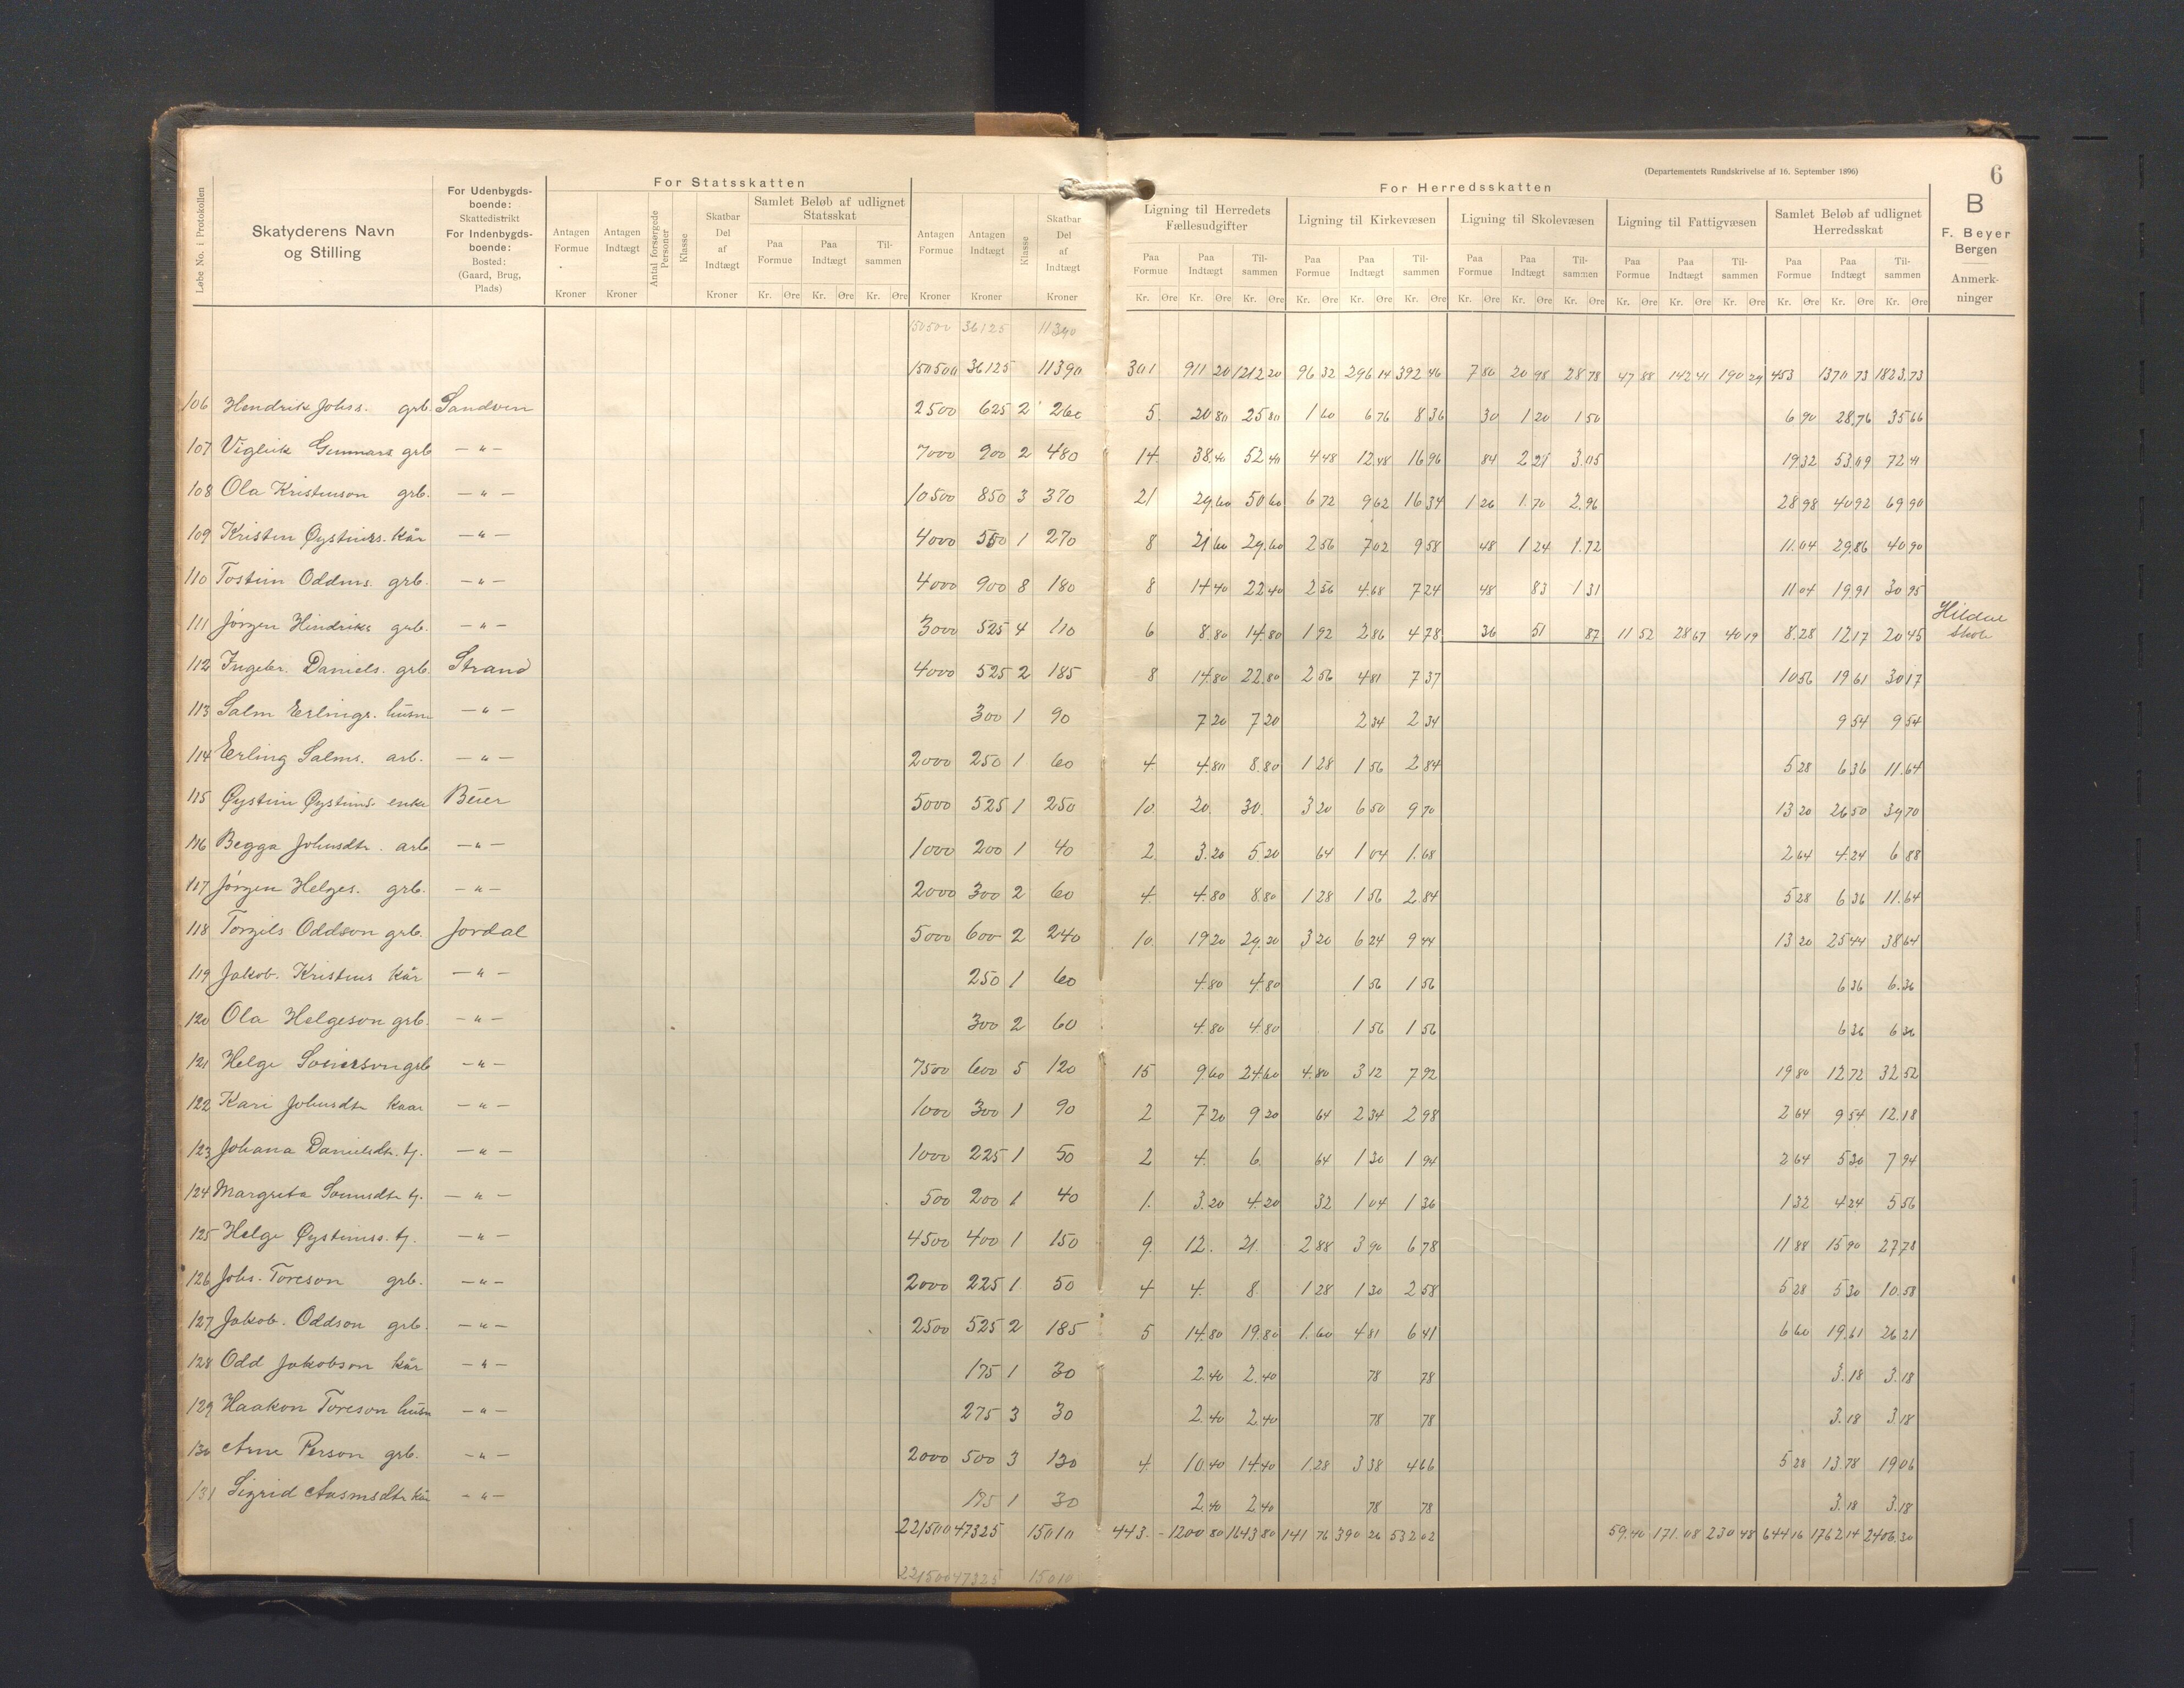 (Departementets Rundskrivelse af 16. September 1896) 6
Løbe No. i Protokollen
Skatyderens Navn og Stilling
For Udenbygds-boende: Skattedistrikt For Indenbygds-boende: Bosted: (Gaard, Brug, Plads)
For Statsskatten
Antagen Formue Kroner
Antagen Indtægt Kroner
Antal forsørgede Personer
Klasse
Skatbar Del af Indtægt Kroner
Samlet Beløb af udlignet Statsskat
Paa Formue Paa Indtægt Til-sammen
Kr. Øre Kr. Øre Kr. Øre
Antagen Formue Kroner
Antagen Indtægt Kroner
Klasse
Skatbar Del af Indtægt Kroner
For Herredsskatten
Ligning til Herredets Fællesudgifter
Paa Formue Paa Indtægt Til-sammen
Kr. Øre Kr. Øre Kr. Øre
Ligning til Kirkevæsen
Paa Formue Paa Indtægt Til-sammen
Kr. Øre Kr. Øre Kr. Øre
Ligning til Skolevæsen
Paa Formue Paa Indtægt Til-sammen
Kr. Øre Kr. Øre Kr. Øre
Ligning til Fattigvæsen
Paa Formue Paa Indtægt Til-sammen
Kr. Øre Kr. Øre Kr. Øre
Samlet Beløb af udlignet Herredsskat
Paa Formue Paa Indtægt Til-sammen
Kr. Øre Kr. Øre Kr. Øre
B
F. Beyer
Bergen
Anmerk-ninger
150500 36125 11390
150500 36125 11390 301 911 20 1212 20 96 32 296 14 392 46 7 80 20 98 28 78 47 88 142 41 190 29 453 1370 73 1823.73
106 Hendrik Johss. grb. Sandven 2500 625 2 260 5 20 80 25 80 1 60 6 76 8 36 30 1 20 1 50 6 90 28.76 35 66
107 Viglik Gunnars grb — " — 7000 900 2 480 14 38.40 52 40 4 48 12.48 16 96 84 2 21 3.05 19 32 53.09 72 41
108 Ola Kristenson grb. — " — 10500 850 3 370 21 29.60 50 60 6 72 9 62 16 34 1 26 1.70 2.96 28 98 40 92 69 90
109 Kristen Øystins. kår — " — 4000 550 1 270 8 21 60 29.60 2 56 7 02 9 58 48 1 24 1.72 11.04 29.86 40 90
110 Tostein Oddms. grb. — " — 4000 900 8 180 8 14 40 22 40 2 56 4.68 7 24 48 83 1 31 11 04 19.91 30 95
111 Jørgen Hindriks grb. — " — 3000 525 4 110 6 8.80 14.80 1 92 2 86 4 78 36 51 87 11 52 28 67 40 19 8.28 12 17 20 45 Hildal Skole
112 Ingebr. Daniels. grb. Strand 4000 525 2 185 8 14.80 22.80 2 56 4 81 7 37 10 56 19 61 30 17
113 Salm Erlings. husm — " — 300 1 90 7 20 7 20 2 34 2 34 9 54 9 54
114 Erling Salms. arb. — " — 2000 250 1 60 4 4.80 8.80 1 28 1 56 2 84 5 28 6 36 11.64
115 Øystein Øystins enke Beier 5000 525 1 250 10. 20. 30. 3 20 6 50 9 70 13 20 26 50 39 70
116 Begga Johnsdtr. arb — " — 1000 200 1 40 2 3.20 5.20 64 1 04 1.68 2 64 4.24 6 88
117 Jørgen Helges. grb. — " — 2000 300 2 60 4 4.80 8.80 1 28 1 56 2.84 5 28 6 36 11.64
118 Torgils Oddson grb. Jordal 5000 600 2 240 10. 19 20 29.20 3 20 6 24 9 44 13 20 25 44 38 64
119 Jakob. Kristens kår — " — 250 1 60 4.80 4.80 1 56 1 56 6 36 6.36
120 Ola Helgeson grb. — " — 300 2 60 4.80 4.80 1 56 1 56 6 36 6 36
121 Helge grb — " — 7500 600 5 120 15 9 60 24 60 4.80 3 12 7 92 19 80 12 72 32 52
122 Kari Johnsdtr kaar — " — 1000 300 1 90 2 7 20 9 20 64 2 34 2 98 2 64 9 54 12.18
123 Johana Danielsdtr. tj. — " — 1000 225 1 50 2 4. 6. 64 1 30 1 94 2 64 5 30 7 94
124 Margreta tj. — " — 500 200 1 40 1. 3.20 4.20 32 1 04 1 36 1 32 4 24 5 56
125 Helge Øysteinss. tj. — " — 4500 400 1 150 9 12. 21. 2 88 3 90 6 78 11 88 15 90 27 78
126 Johs. Toreson grb. — " — 2000 225 1 50 4 4. 8 1 28 1 30 2 58 5 28 5 30 10.58
127 Jakob. Oddson grb. — " — 2500 525 2 185 5 14.80 19.80 1.60 4 81 6 41 6 60 19.61 26 21
128 Odd Jakobson kår — " — 175 1 30 2.40 2.40 78 78 3.18 3.18
129 Haakon Toreson husm — " — 275 3 30 2.40 2.40 78 78 3.18 3.18
130 Arne Person grb. — " — 2000 500 3 130 4. 10.40 14.40 1 28 3 38 4 66 5 28 13.78 19 06
131 Sigrid Aasmsdtr kår — " — 195 1 30 2.40 2.40 78 78 3.18 3.18
221500 47325 15010 443. - 1200 80 1643 80 141 76 390 26 532 02 59.40 171.08 230 48 644 16 1762 14 2406.30
221500 47325 15010